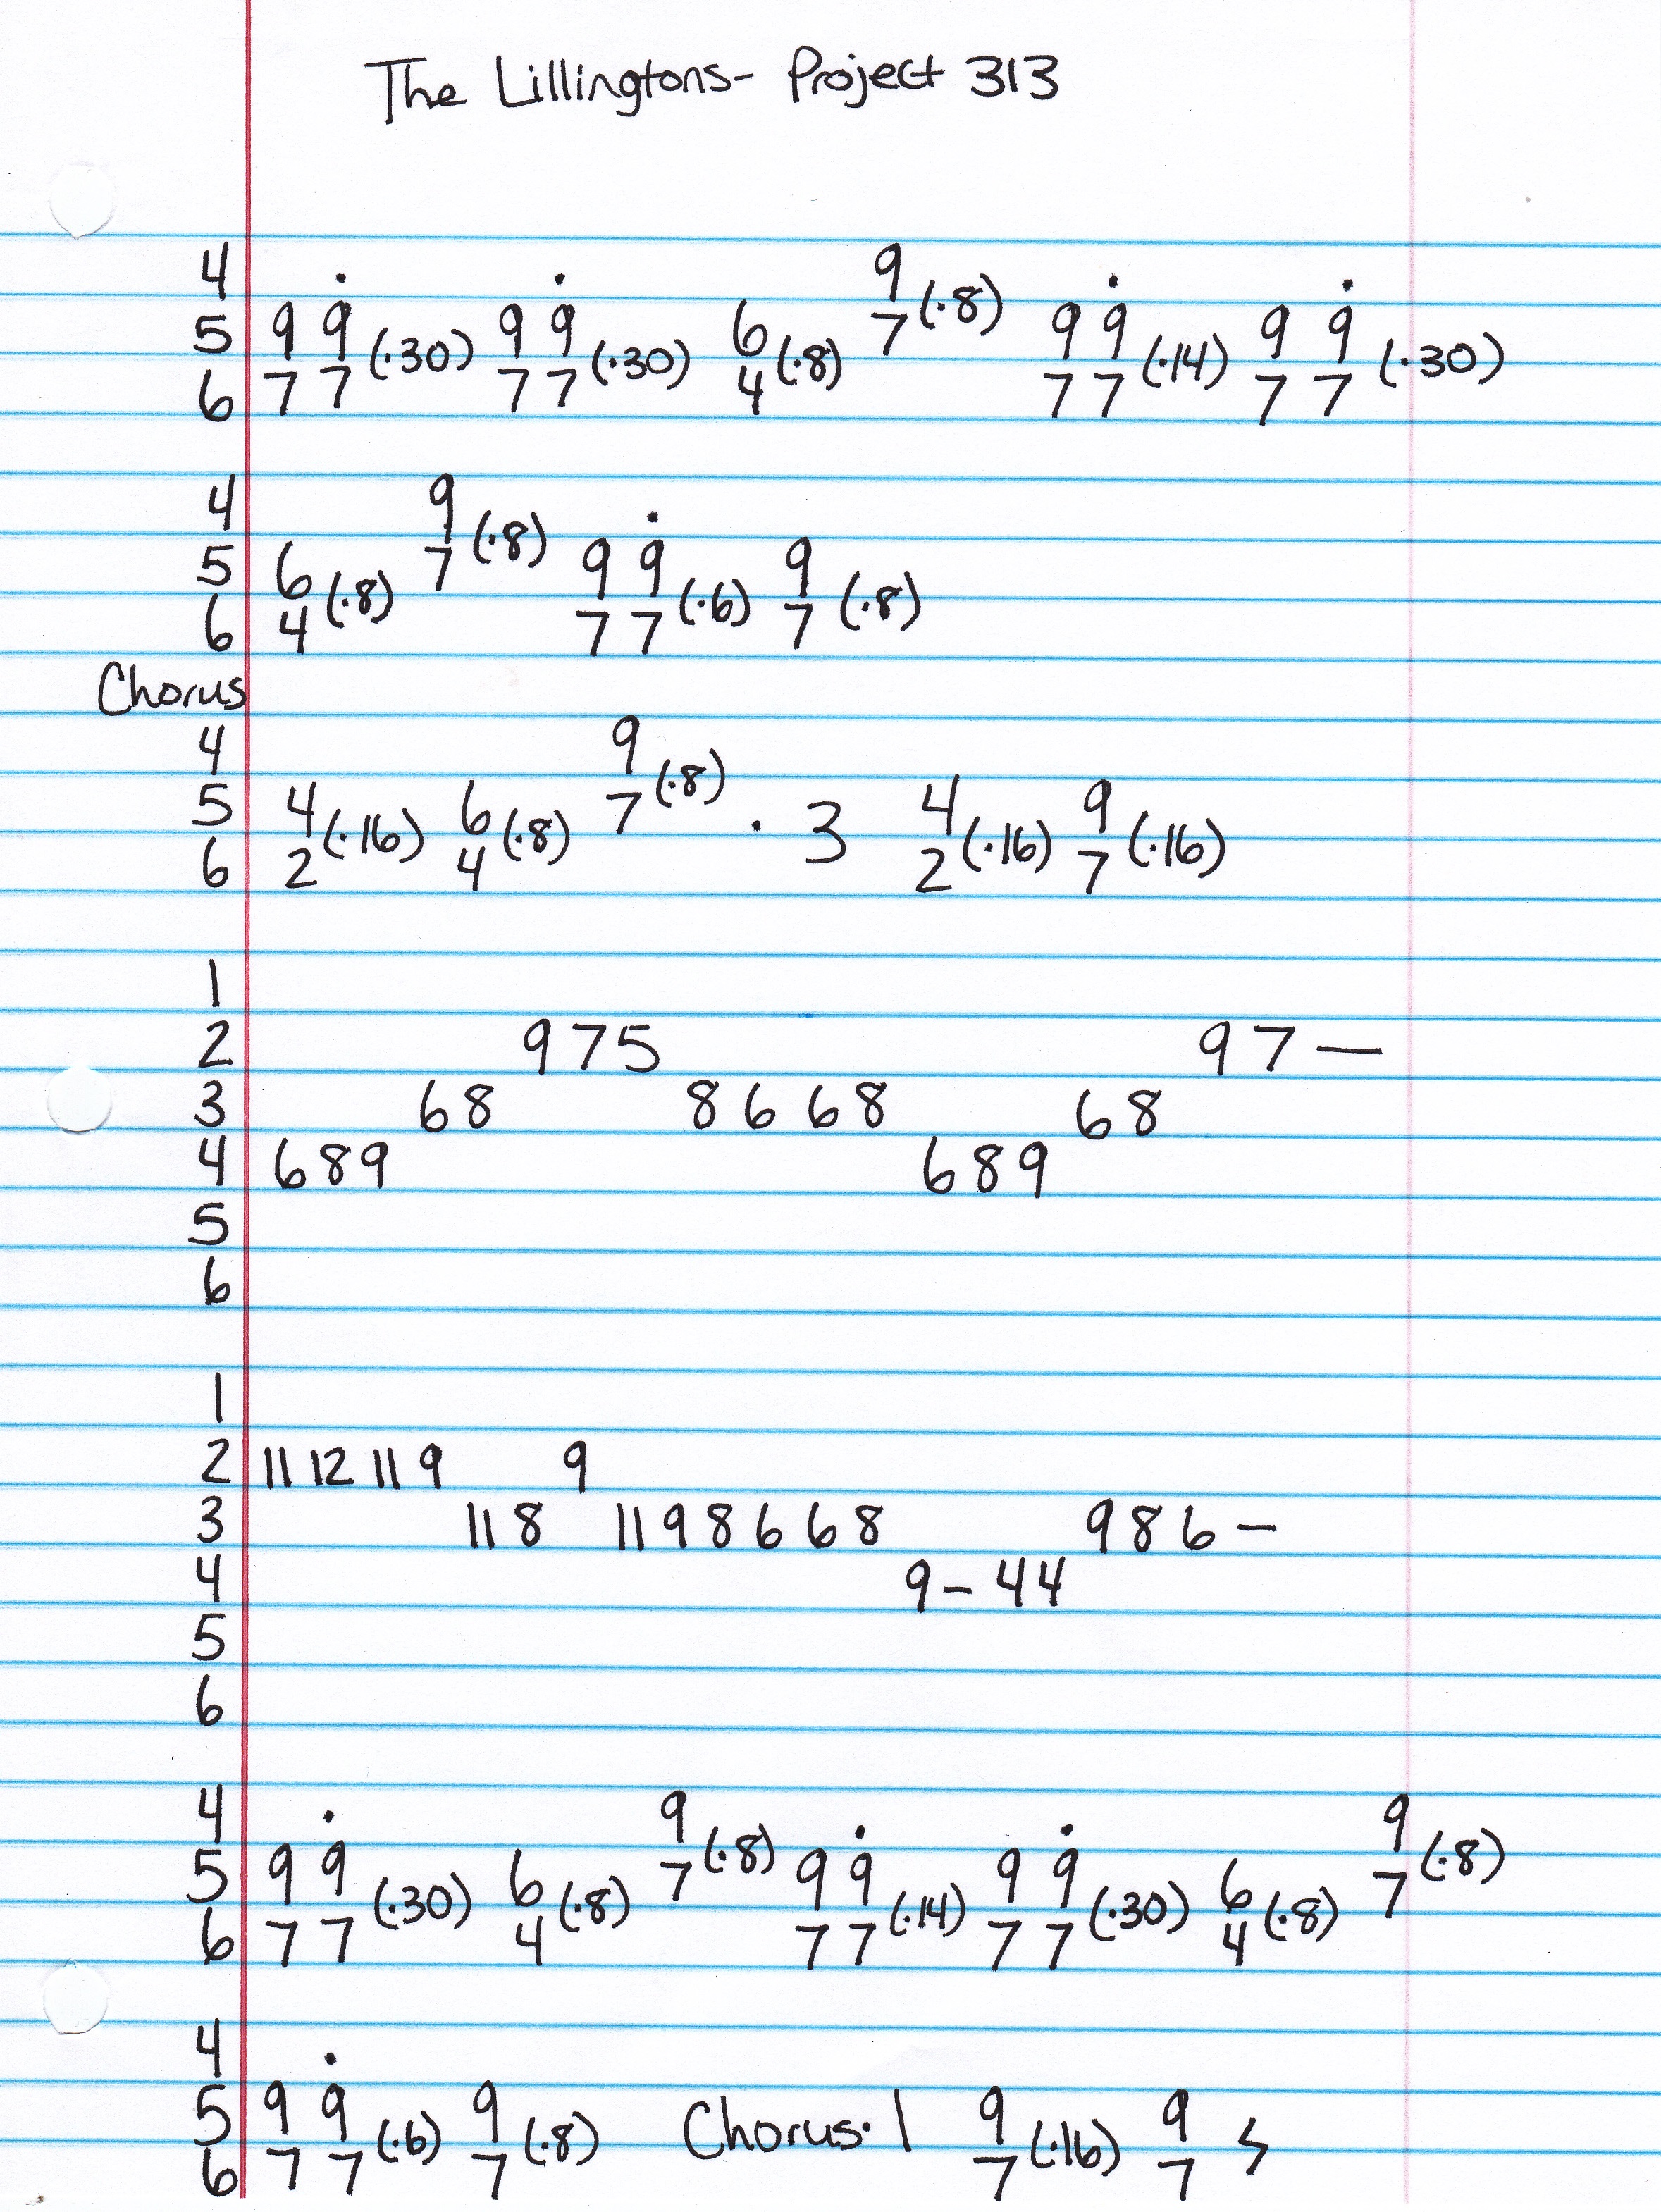 The Lillingtons- Project 313
4 9
5 9 9 (·30) 9 9 (·30) 6 (·8) 7 (·8) 9 9 (·14) 9 9 (·30)
6 7 7 7 7 4 7 7 7 7
4 9
5 6 (·8) 7 (·8) 9 9 (·6) 9 (·8)
6 4 7 7 7
Chorus
4 9
5 4 (·16) 6 (·8) 7 (·8) · 3 4 (·16) 9 (·16)
6 2 4 2 7
1
2 9 7 5 9 7 —
3 6 8 8 6 6 8 6 8
4 6 8 9 6 8 9
5
6
1
2 11 12 11 9 9
3 11 8 11 9 8 6 6 8 9 8 6 —
4 9 — 4 4
5
6
4 9 9
5 9 9 (·30) 6 (·8) 7 (·8) 9 9 (·14) 9 9 (·30) 6 (·8) 7 (·8)
6 7 7 4 7 7 7 7 4
4
5 9 9 (·6) 9 (·8) Chorus · 1 9 (·16) 9
6 7 7 7 7 7